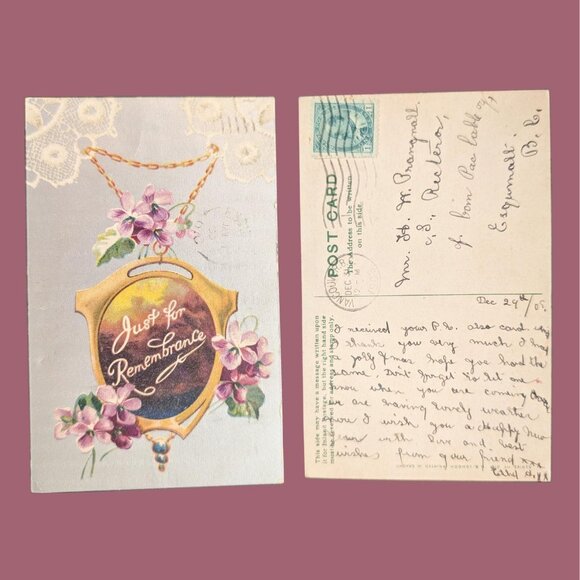 Just for
Remembrance
POST CARD
The Address to be written
on this side.
Mr. H. W. Prangnall
Esquimalt
B. C.
This side may have a message written upon
it for Inland Postage, but the right hand side
must be reserved for address and stamp only.
Dec 29th/05.
I received your P.C. also card
I thank you very much I had
a jolly Xmas hope you had the
same. Don't forget to let me
know when you are coming
we are having lovely weather
here I wish you a Happy New
Year with love and best
wishes from your friend xxx